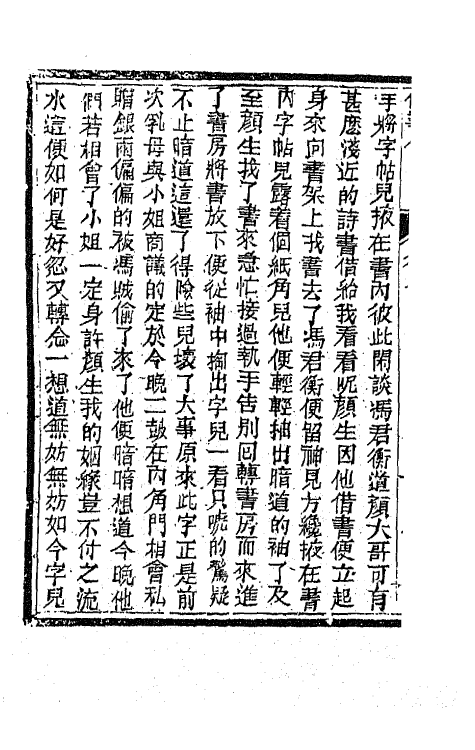 手將字帖兒掖在書內彼此閑談馮君衡道顏大哥可有
甚麽淺近的詩書借給我看看呢顏生因他借書便立起
身來向書架上找書去了馮君衡便留神見方纔掖在書
內字帖兒露着個紙角兒他便輕輕抽出暗道的袖了及
至顏生找了書來急忙接過執手告別回轉書房而來進
了書房將書放下便從袖中掏出字兒一看只唬的驚疑
不止暗道這還了得險些兒壞了大事原來此字正是前
次乳母與小姐商議的定於今晚二鼓在內角門相會私
贈銀兩偏偏的被馮賊偷了來了他便暗暗想道今晚他
們若相會了小姐一定身許顏生我的姻緣豈不付之流
水這便如何是好忽又轉念一想道無妨無妨如今字兒